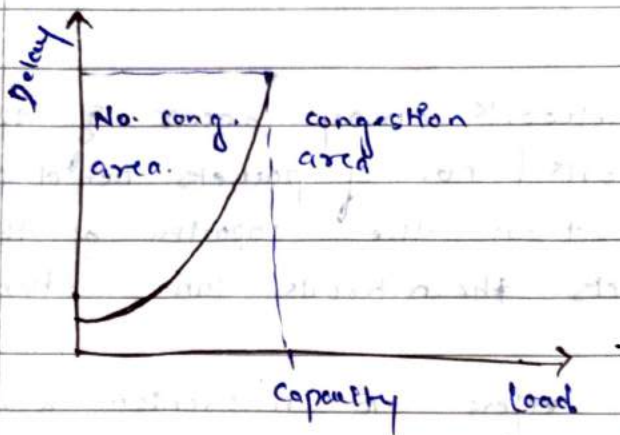 Delay
No. cong. congestion
area. area
Capacity load